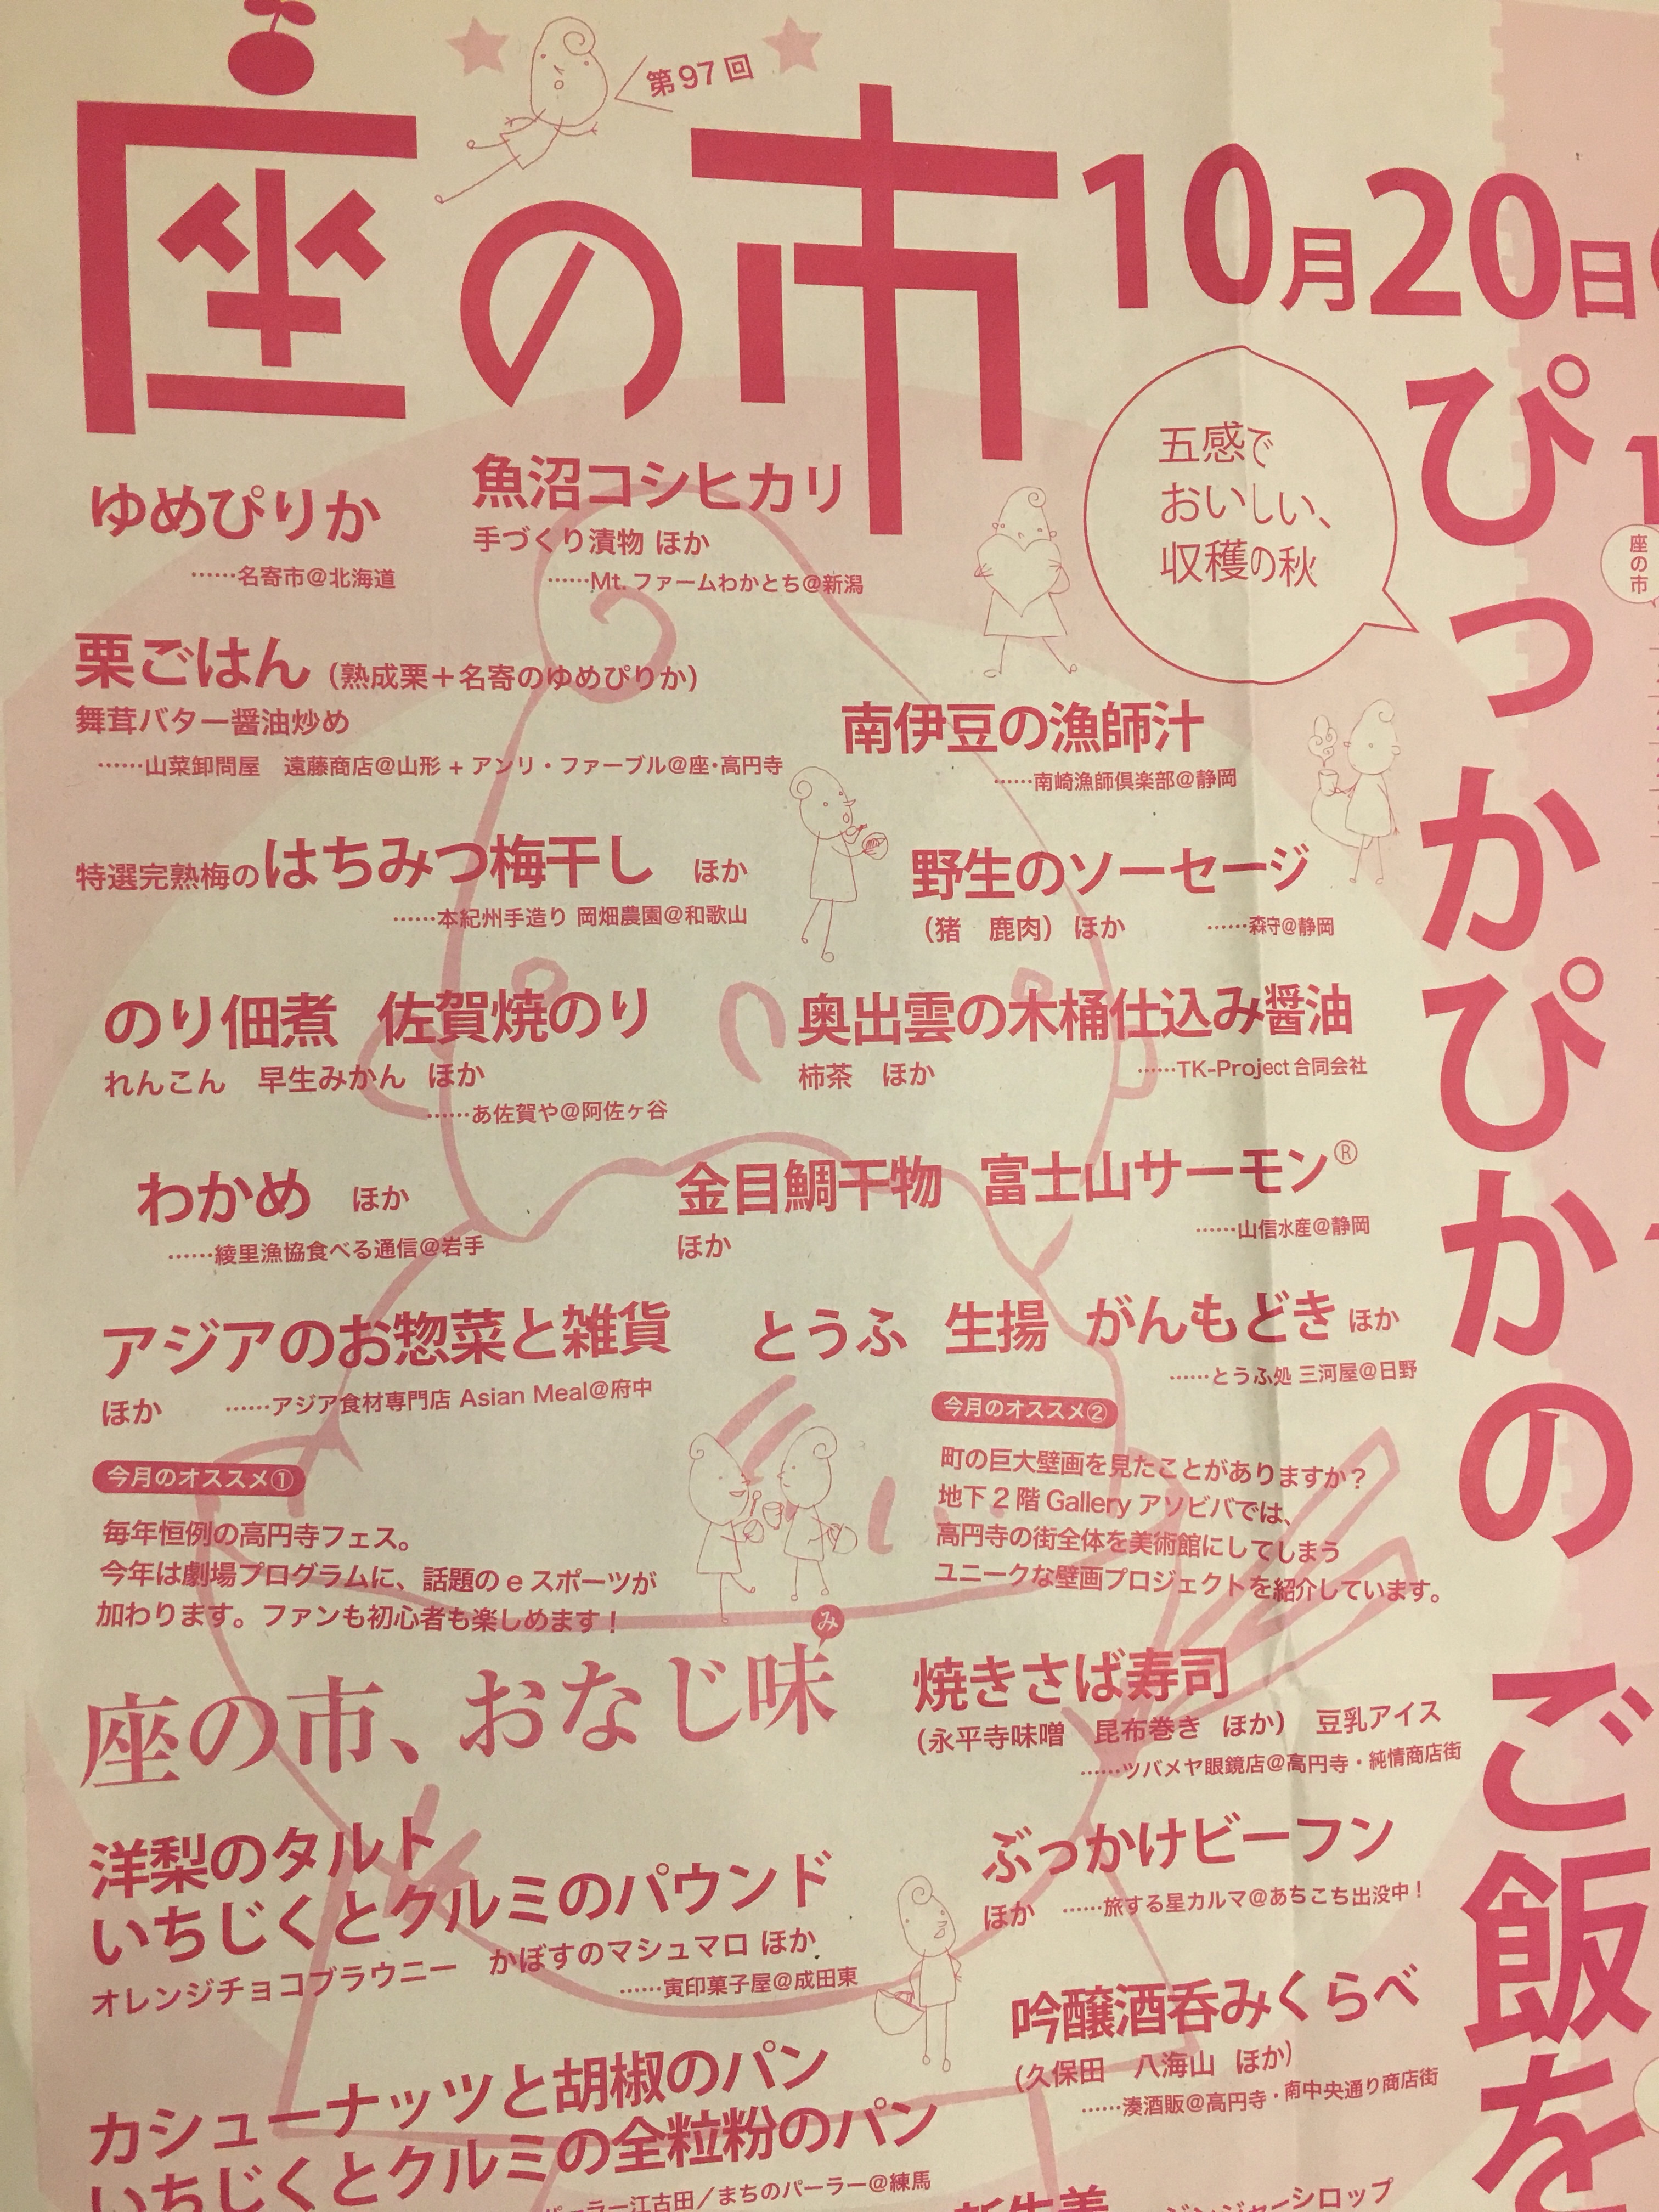 第97回
座の市
10月20日
ぴっかぴかのご飯を
五感で
おいしい、
収穫の秋
座の市
ゆめぴりか
……名寄市@北海道
魚沼コシヒカリ
手づくり漬物 ほか
……Mt. ファームわかとち@新潟
栗ごはん（熟成栗＋名寄のゆめぴりか）
舞茸バター醤油炒め
……山菜卸問屋　遠藤商店@山形 + アンリ・ファーブル@座・高円寺
南伊豆の漁師汁
……南崎漁師倶楽部@静岡
特選完熟梅のはちみつ梅干し　ほか
……本紀州手造り 岡畑農園@和歌山
野生のソーセージ
（猪　鹿肉）ほか　……森守@静岡
のり佃煮　佐賀焼のり
れんこん　早生みかん　ほか
……あ佐賀や@阿佐ヶ谷
奥出雲の木桶仕込み醤油
柿茶　ほか　……TK-Project 合同会社
わかめ　ほか
……綾里漁協食べる通信@岩手
金目鯛干物　富士山サーモン®
ほか　……山信水産@静岡
アジアのお惣菜と雑貨
ほか　……アジア食材専門店 Asian Meal@府中
とうふ　生揚　がんもどき ほか
……とうふ処 三河屋@日野
今月のオススメ①
毎年恒例の高円寺フェス。
今年は劇場プログラムに、話題の e スポーツが
加わります。ファンも初心者も楽しめます！
今月のオススメ②
町の巨大壁画を見たことがありますか？
地下 2 階 Gallery アソビバでは、
高円寺の街全体を美術館にしてしまう
ユニークな壁画プロジェクトを紹介しています。
み
座の市、おなじ味
焼きさば寿司
（永平寺味噌　昆布巻き　ほか）　豆乳アイス
……ツバメヤ眼鏡店@高円寺・純情商店街
洋梨のタルト
いちじくとクルミのパウンド
オレンジチョコブラウニー　かぼすのマシュマロ ほか
……寅印菓子屋@成田東
ぶっかけビーフン
ほか　……旅する星カルマ@あちこち出没中！
吟醸酒呑みくらべ
（久保田　八海山　ほか）
……湊酒販@高円寺・南中央通り商店街
カシューナッツと胡椒のパン
いちじくとクルミの全粒粉のパン
パーラー江古田／まちのパーラー@練馬
ジンジャーシロップ